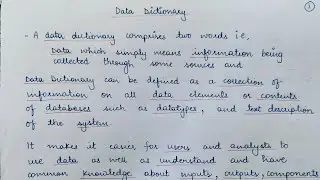 Data Dictionary
1
- A data dictionary comprises two words i.e,
Data which simply means information being
collected through some sources and
Data Dictionary can be defined as a collection of
information on all data elements or contents
of databases such as datatypes, and text description
of the system.
It makes it easier for users and analysts to
use data as well as understand and have
common knowledge about inputs, outputs, components